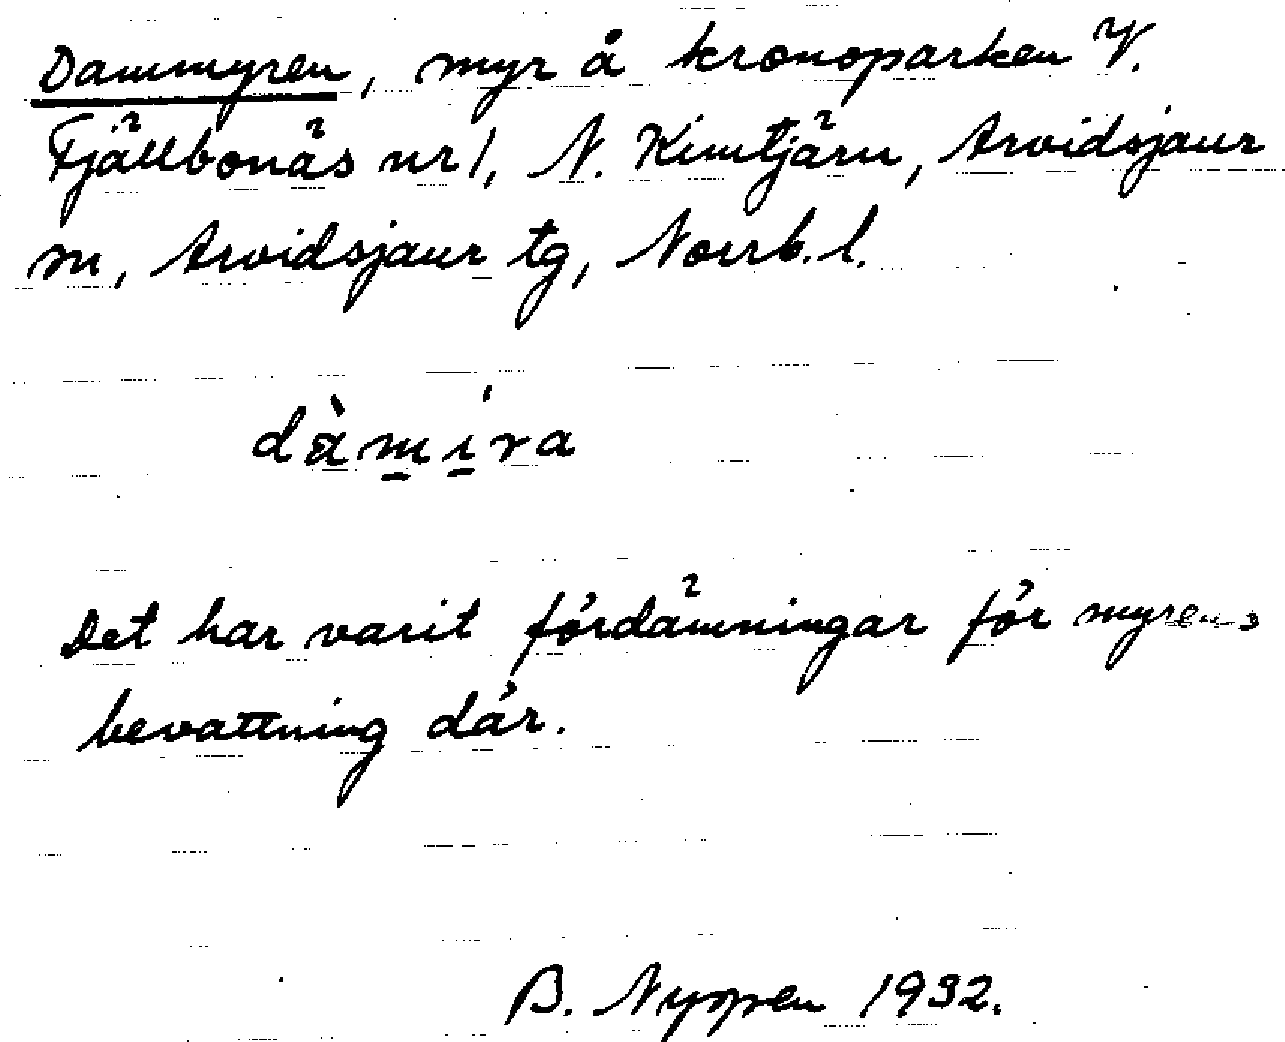 Dammyren, myr å kronoparken V.
Fjällbonäs nr 1, N. Kimtjärn, Arvidsjaur
sn, Arvidsjaur tg, Norrb. l.
dàmíra
Det har varit fördämningar för myrens
bevattning där.
B. Nyppen 1932.